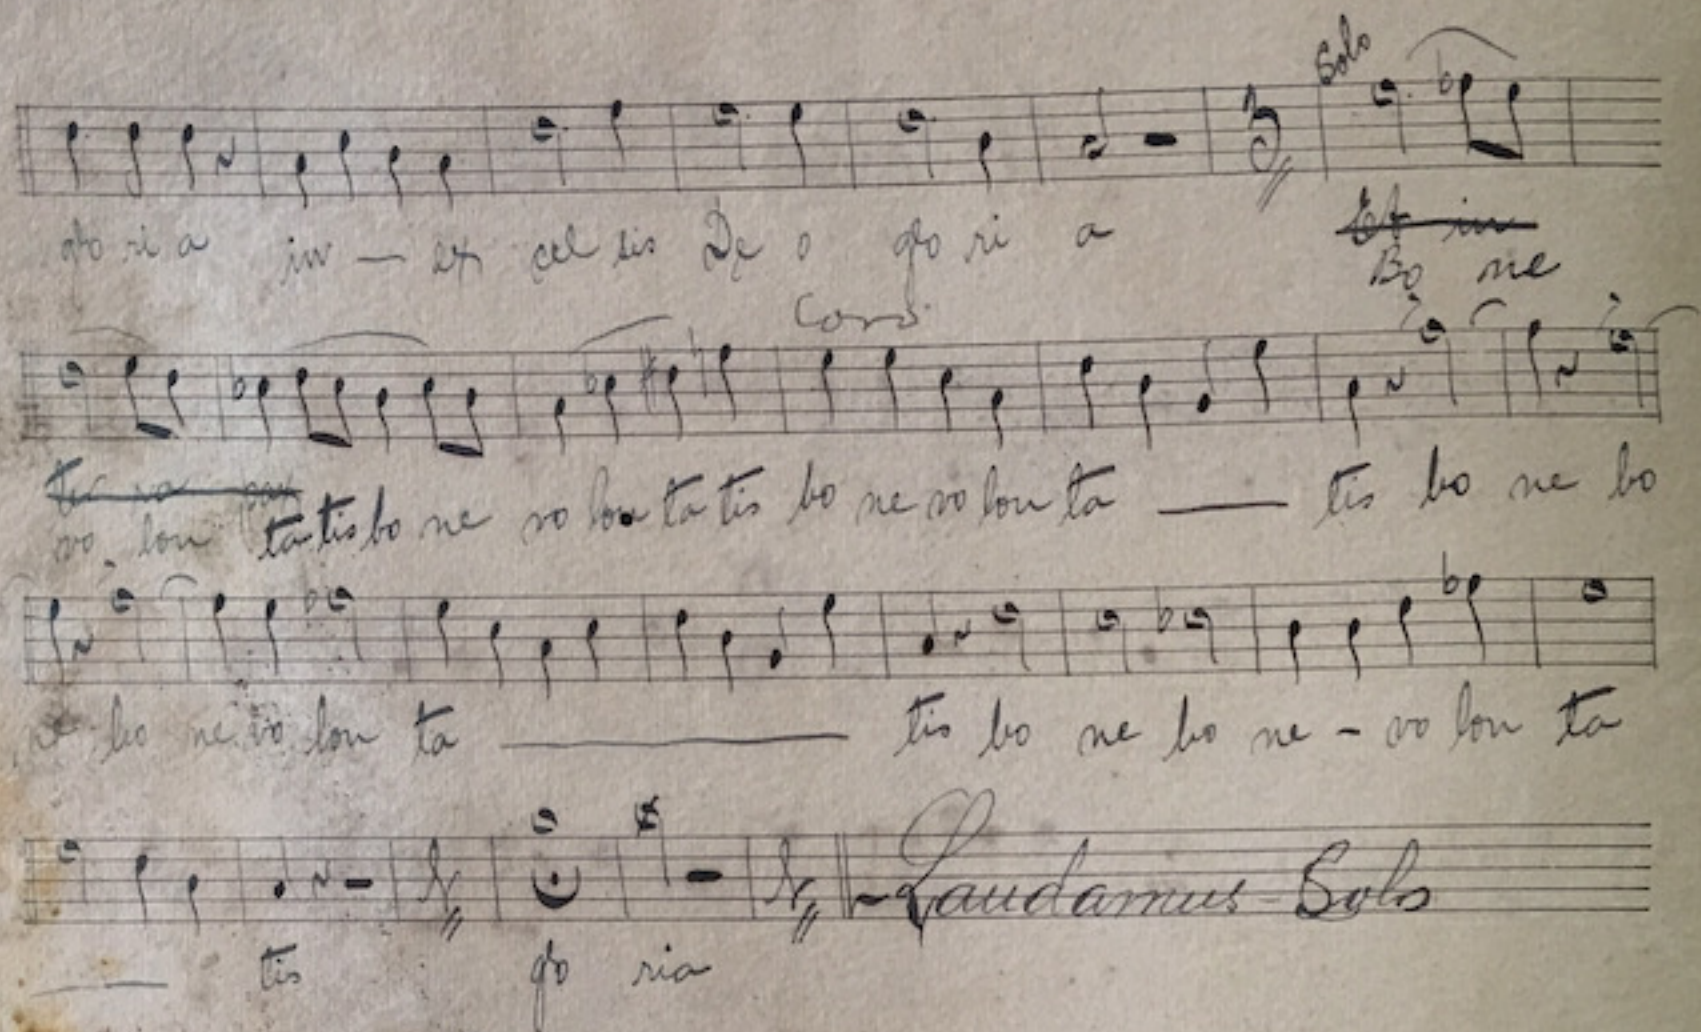 Solo
glo ri a in — ex cel sis De o glo ri a Et in
Bo ne
Coro
ter ra pax
vo lon ta tis bo ne vo lon ta tis bo ne vo lon ta — tis bo ne bo
ne bo ne vo lon ta — tis bo ne bo ne - vo lon ta
Laudamus - Solo
— tis glo ria